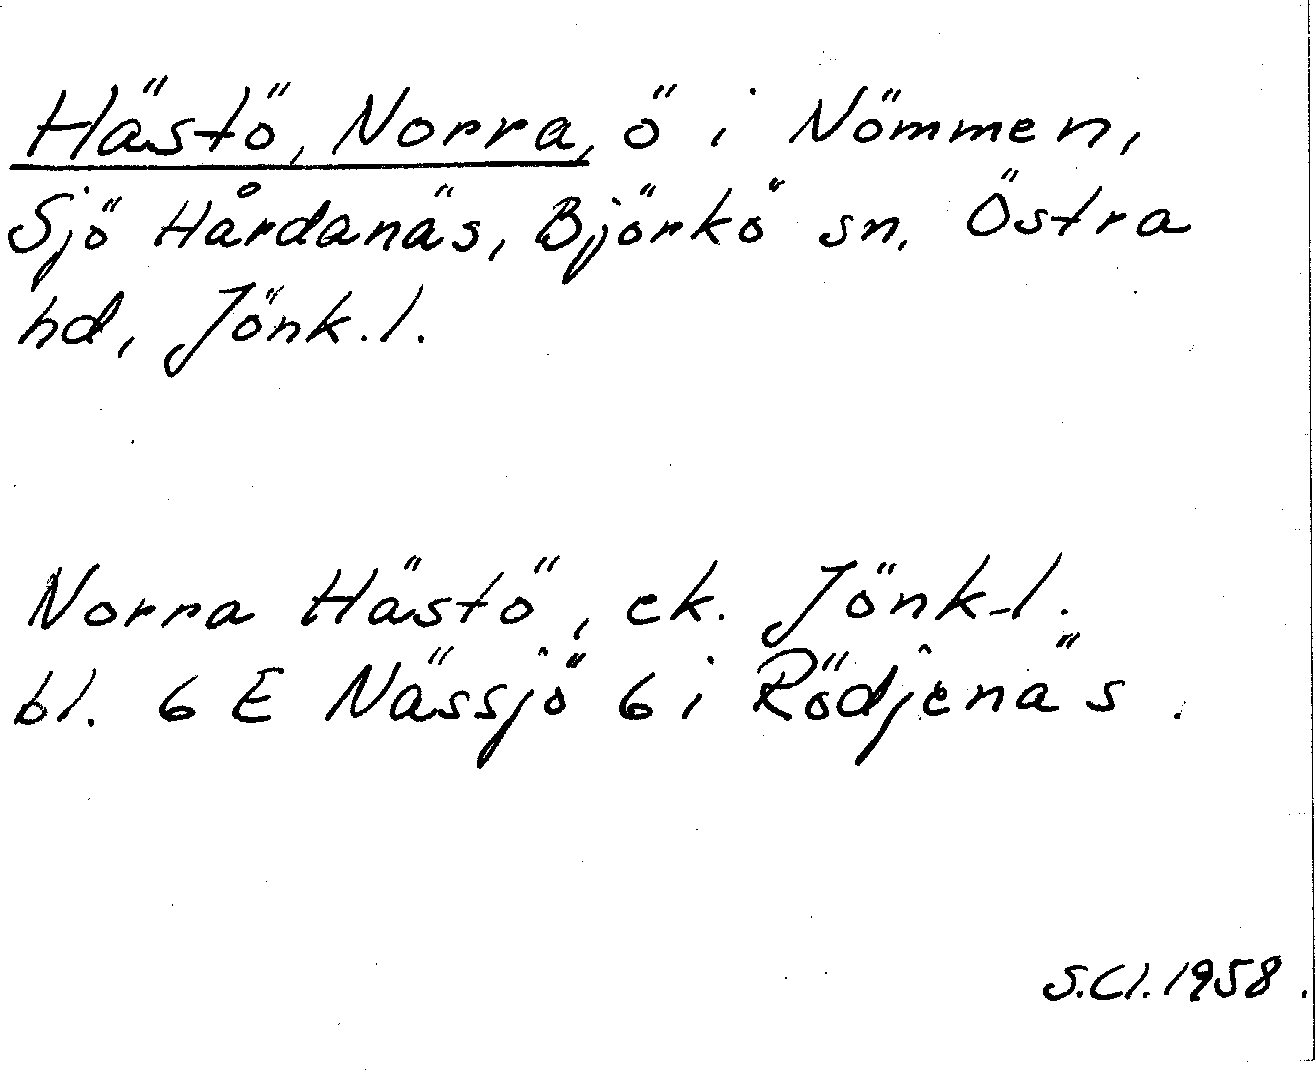 Hästö, Norra, ö i Nömmen,
Sjö Hårdanäs, Björkö sn. Östra
hd, Jönk.l.
Norra Hästö, ek. Jönk-l.
bl. 6 E Nässjö 6 i Rödjenäs.
S.Cl. 1958.